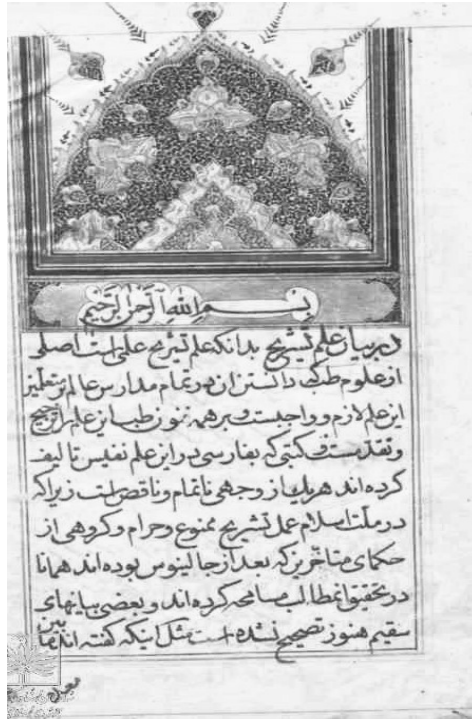 بسم الله الرحمن الرحیم
در بیان علم تشریح بدانکه علم تشریح علمی است اصلی
از علوم طب که دانستن آن در تمام مدارس عالم بر متعلمین
این علم لازم و واجبست و بر همه فنون طب این علم را ترجیح
و تقدیمست و کتبی که بفارسی در این علم نفیس تالیف
کرده اند هر یك از وجهی ناتمام و ناقص است زیرا که
در ملت اسلام عمل تشریح ممنوع و حرام و کروهی از
حکمای متاخرین که بعد از جالینوس بوده اند همانا
در تحقیق مطالب مسامحه کرده اند و بعضی بیانهای
سقیم هنوز تصحیح نشده است مثل اینکه کفته اند مابین